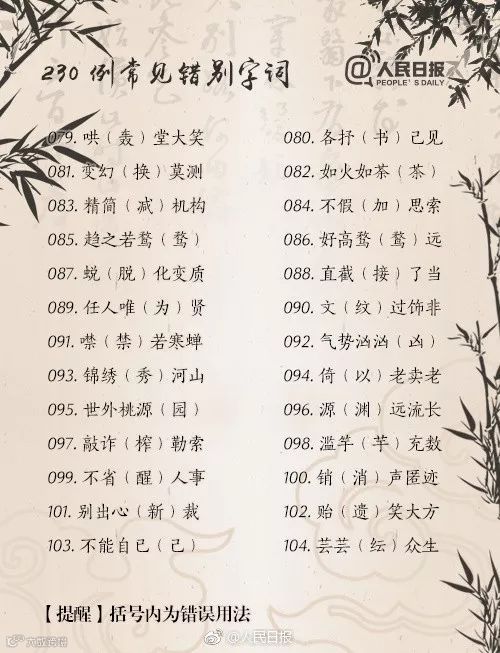 230例常见错别字词
@人民日报
PEOPLE'S DAILY
079. 哄（轰）堂大笑
080. 各抒（书）己见
081. 变幻（换）莫测
082. 如火如荼（茶）
083. 精简（减）机构
084. 不假（加）思索
085. 趋之若鹜（骛）
086. 好高骛（鹜）远
087. 蜕（脱）化变质
088. 直截（接）了当
089. 任人唯（为）贤
090. 文（纹）过饰非
091. 噤（禁）若寒蝉
092. 气势汹汹（凶）
093. 锦绣（秀）河山
094. 倚（以）老卖老
095. 世外桃源（园）
096. 源（渊）远流长
097. 敲诈（榨）勒索
098. 滥竽（芋）充数
099. 不省（醒）人事
100. 销（消）声匿迹
101. 别出心（新）裁
102. 贻（遗）笑大方
103. 不能自已（己）
104. 芸芸（纭）众生
【提醒】括号内为错误用法
@人民日报